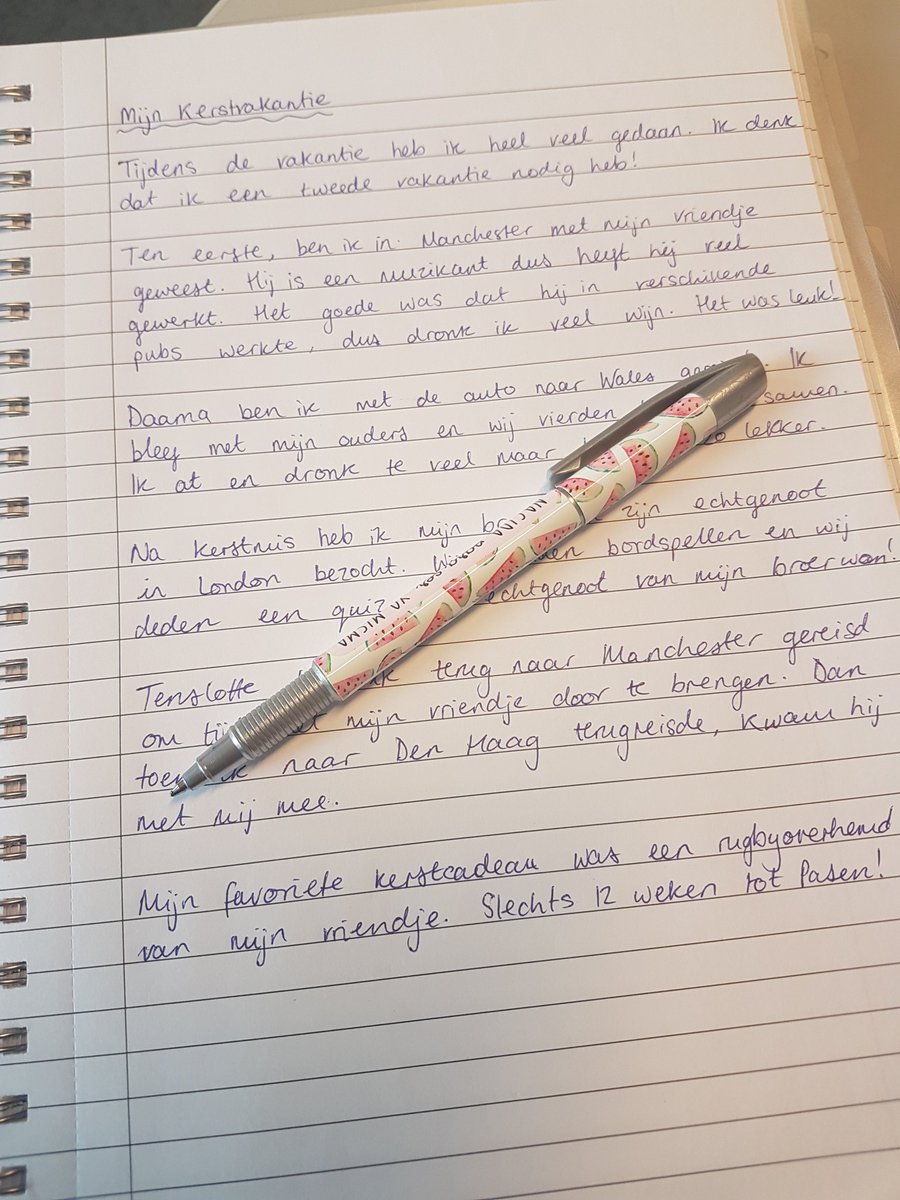 Mijn Kerstvakantie
Tijdens de vakantie heb ik heel veel gedaan. Ik denk
dat ik een tweede vakantie nodig heb!
Ten eerste, ben ik in Manchester met mijn vriendje
geweest. Hij is een muzikant dus heeft hij veel
gewerkt. Het goede was dat hij in verschillende
pubs werkte, dus dronk ik veel wijn. Het was leuk!
Daarna ben ik met de auto naar Wales Ik
bleef met mijn ouders en wij vierden samen.
Ik at en dronk te veel maar lekker.
Na kerstmis heb ik mijn zijn echtgenoot
in London bezocht. bordspellen en wij
deden een quiz echtgenoot van mijn broer won!
Tenslotte terug naar Manchester gereisd
om mijn vriendje door te brengen. Dan
toen ik naar Den Haag terugreisde, kwam hij
met mij mee.
Mijn favoriete kerstcadeau was een rugbyoverhemd
van mijn vriendje. Slechts 12 weken tot Pasen!